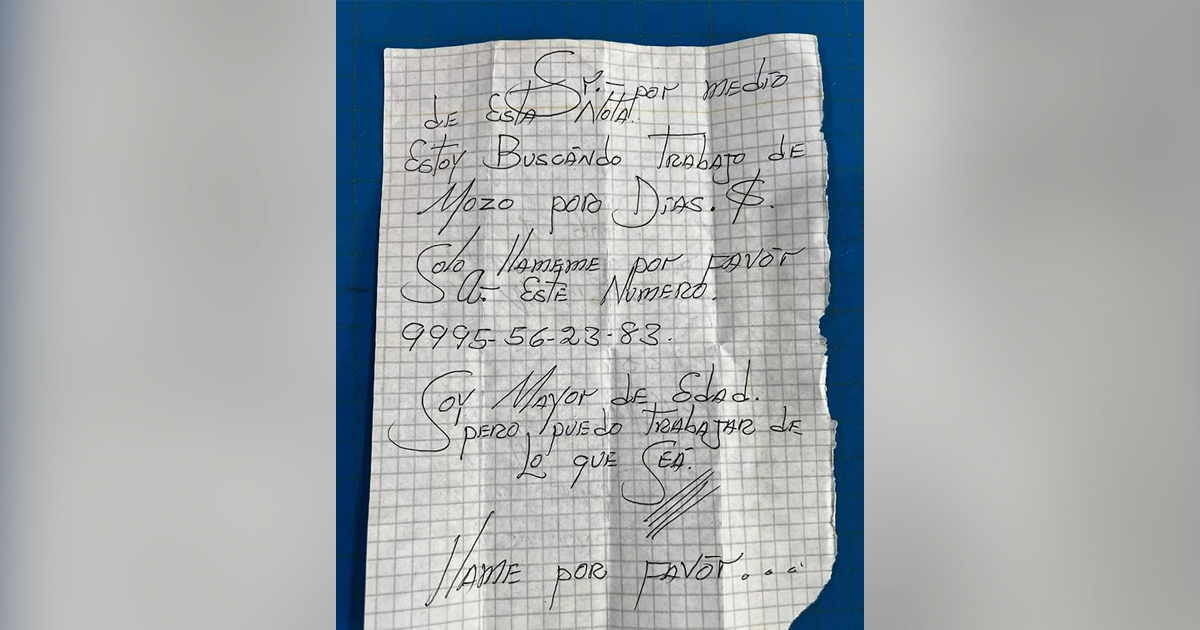 Sr.- por medio
de Esta Nota.
Estoy Buscando Trabajo de
Mozo por Dias. $.
Solo llameme por favor
A- Este Numero.
9995-56-23-83.
Soy Mayor de Edad.
pero puedo trabajar de
Lo que Sea.
llame por favor...